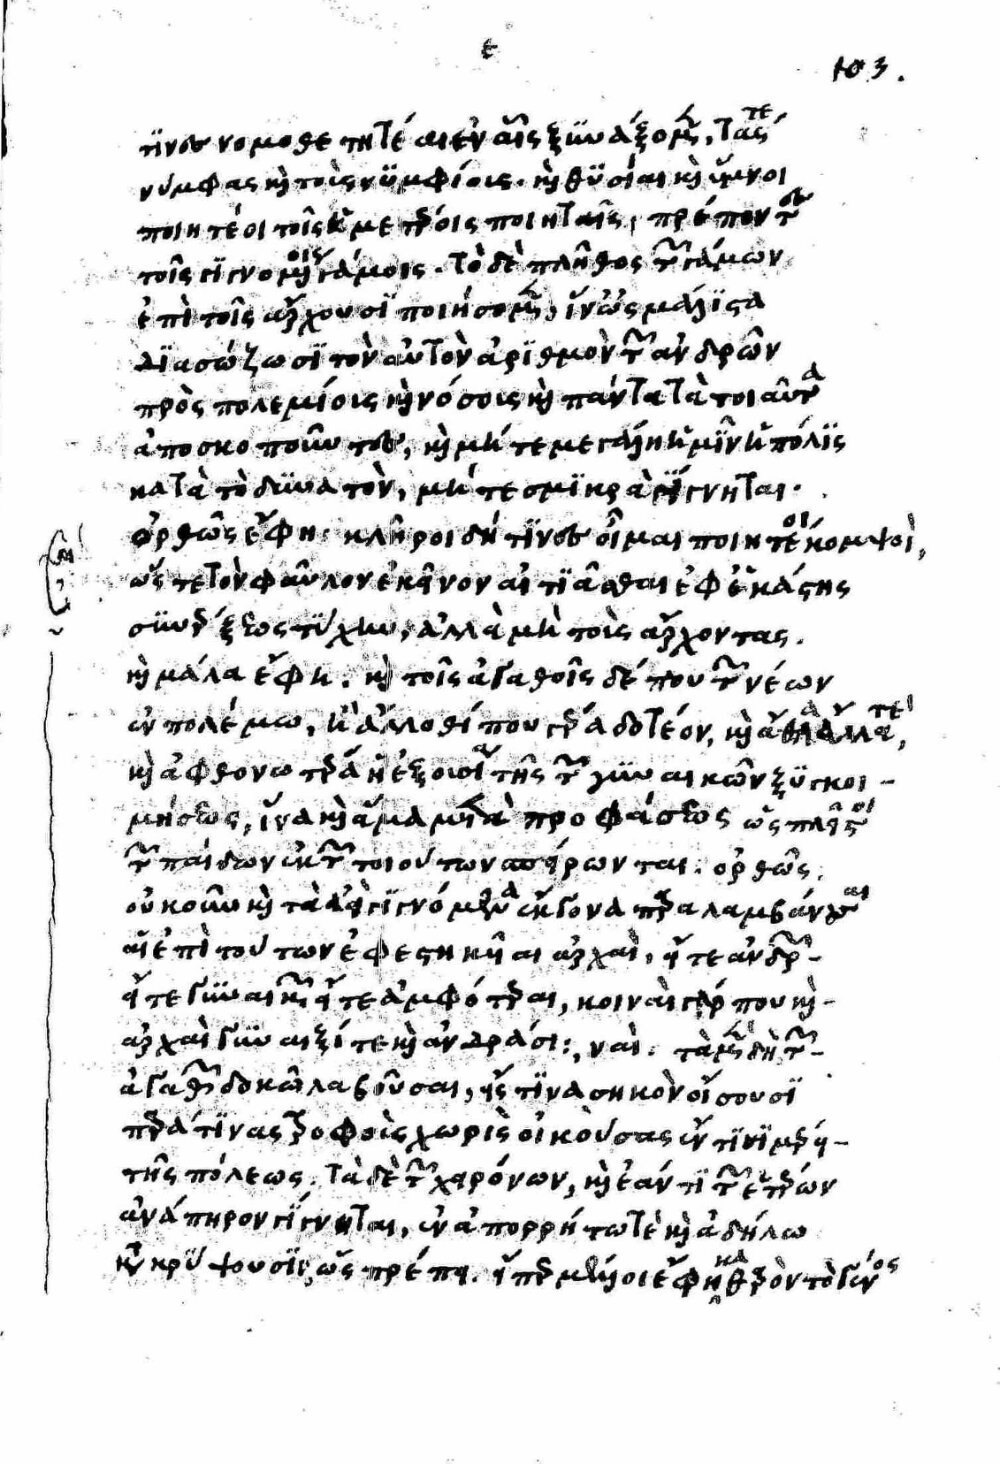 ε
103.
τινες νομοθετητέαι ἐν αἷς ξυνάξομεν τάς τε
νύμφας καὶ τοὺς νυμφίους. καὶ θυσίαι καὶ ὕμνοι
ποιητέοι τοῖς ἡμετέροις ποιηταῖς, πρέποντες
τοῖς γιγνομένοις γάμοις. τὸ δὲ πλῆθος τῶν γάμων
ἐπὶ τοῖς ἄρχουσι ποιήσομεν, ἵν' ὡς μάλιστα
διασώζωσι τὸν αὐτὸν ἀριθμὸν τῶν ἀνδρῶν
πρὸς πολέμους καὶ νόσους καὶ πάντα τὰ τοιαῦτα
ἀποσκοποῦντες, καὶ μήτε μεγάλη ἡμῖν ἡ πόλις
κατὰ τὸ δυνατὸν, μήτε σμικρὰ γίγνηται.
ὀρθῶς ἔφη. κλῆροι δή τινες οἶμαι ποιητέοι κομψοὶ,
ὥστε τὸν φαῦλον ἐκεῖνον αἰτιᾶσθαι ἐφ' ἑκάστης
συνέρξεως τύχην, ἀλλὰ μὴ τοὺς ἄρχοντας.
καὶ μάλα ἔφη. καὶ τοῖς ἀγαθοῖς δέ που τῶν νέων
ἐν πολέμῳ, ἢ ἄλλοθί που γέρα δοτέον, καὶ ἆθλα ἄλλα τε,
καὶ ἀφθονωτέρα ἡ ἐξουσία τῆς τῶν γυναικῶν ξυγκοι-
μήσεως, ἵνα καὶ ἅμα μετὰ προφάσεως ὡς πλεῖστοι
τῶν παίδων ἐκ τῶν τοιούτων σπείρωνται. ὀρθῶς.
οὐκοῦν καὶ τὰ ἀεὶ γιγνόμενα ἔκγονα παραλαμβάνουσαι
αἱ ἐπὶ τούτων ἐφεστηκυῖαι ἀρχαὶ, εἴτε ἀνδρῶν-
εἴτε γυναικῶν εἴτε ἀμφότεραι, κοιναὶ γάρ που καὶ-
ἀρχαὶ γυναιξί τε καὶ ἀνδράσι:, ναί. τὰ μὲν δὴ τῶν-
ἀγαθῶν δοκῶ λαβοῦσαι, εἰς τινα σηκὸν οἴσουσι
παρά τινας τροφοὺς χωρὶς οἰκούσας ἔν τινι μέρει-
τῆς πόλεως. τὰ δὲ τῶν χειρόνων, καὶ ἐάν τι τῶν ἑτέρων
ἀνάπηρον γίγνηται, ἐν ἀπορρήτῳ τε καὶ ἀδήλῳ
κατακρύψουσιν, ὡς πρέπει. εἴπερ μέλλει οἱ ἔφη καθαρὸν τὸ γένος